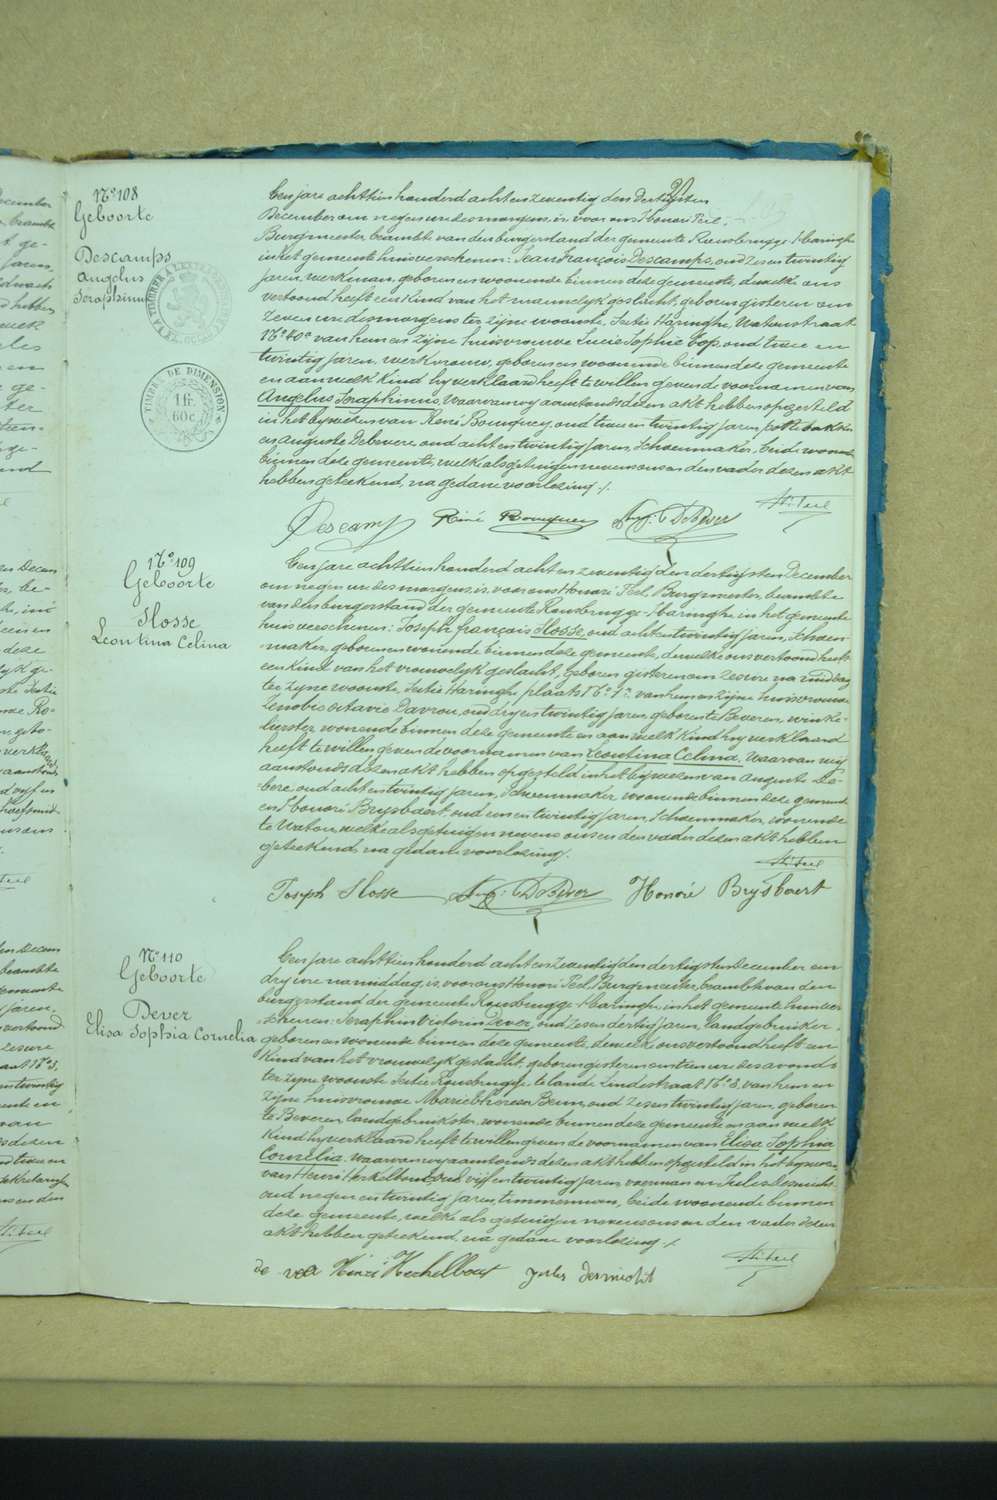 N° 108
Geboorte
Descamps
Angelus
Seraphinus
TIMBRE DE DIMENSION
1 fr.
60 c.
Een jare achttien honderd acht en zeventig den dertigsten
December om negen ure des morgens, is voor ons Honoré Peel,
Burgmeester, beambte van den burgerstand der gemeente Rousbrugge-Haringhe
in het gemeentehuis verschenen: Jean François Descamps, oud zes en twintig
jaren, werkman, geboren en wonende binnen deze gemeente, dewelke ons
vertoond heeft een kind van het mannelyk geslacht, geboren gisteren om
zeven ure des morgens te zyne woonste, Sectie Haringhe, Watoustraat
N° 40a van hem en zyne huisvrouwe Lucie Sophie Top, oud twee en
twintig jaren, werkvrouw, geboren en wonende binnen deze gemeente
en aan welk kind hy verklaard heeft te willen geven de voornamen van
Angelus Seraphinus, waarvan wy aanstonds dezen akt hebben opgesteld
in het bywezen van René Bouquey, oud twee en twintig jaren,
en Auguste Debevere, oud acht en twintig jaren, Schoenmaker, beide wonende
binnen deze gemeente, welke als getuigen nevens ons en den vader dezen akt
hebben geteekend, na gedane voorlezing ./.
Descamps René Bouquey Aug. DeBever H. Peel
N° 109
Geboorte
Hosse
Leontina Celina
Een jare achttien honderd acht en zeventig den dertigsten December
om negen ure des morgens, is voor ons Honoré Peel, Burgmeester, beambte
van den burgerstand der gemeente Rousbrugge-Haringhe in het gemeente
huis verschenen: Joseph François Hosse, oud acht en twintig jaren, schoen-
maker, geboren en wonende binnen deze gemeente, dewelke ons vertoond heeft
een kind van het vrouwelyk geslacht, geboren gisteren om zes ure na middag
te zyne woonste, Sectie Haringhe, plaats N° 7a van hem en zyne huisvrouwe
Zenobie Octavie Davrou, oud dry en twintig jaren, geboren te Beveren, winke-
lierster, wonende binnen deze gemeente en aan welk kind hy verklaard
heeft te willen geven de voornamen van Leontina Celina, waarvan wy
aanstonds dezen akt hebben opgesteld in het bywezen van Auguste De-
bere, oud acht en twintig jaren, Schoenmaker, wonende binnen deze gemeente
en Honoré Brysbaert, oud een en twintig jaren, Schoenmaker, wonende
te Watou, welke als getuigen nevens ons en den vader dezen akt hebben
geteekend, na gedane voorlezing /.
H. Peel
Joseph Hosse Aug. DeBever Honoré Brysbaert
N° 110
Geboorte
Dever
Elisa Sophia Cornelia
Een jare achttien honderd acht en zeventig den dertigsten December om
dry ure na middag, is voor ons Honoré Peel, Burgmeester, beambte van den
burgerstand der gemeente Rousbrugge-Haringhe, in het gemeentehuis ver-
schenen: Seraphin Victorin Dever, oud zes en dertig jaren, Landgebruiker,
geboren en wonende binnen deze gemeente, dewelke ons vertoond heeft een
Kind van het vrouwelyk geslacht, geboren gisteren om tien ure des avonds
te zyne woonste Sectie Rousbrugge, te lande Lindestraat N° 8, van hem en
zyne huisvrouwe Marie Theresa Beun, oud zes en twintig jaren, geboren
te Beveren, landgebruikster, wonende binnen deze gemeente en aan welk
Kind hy verklaard heeft te willen geven de voornamen van Elisa Sophia
Cornelia, waarvan wy aanstonds dezen akt hebben opgesteld in het bywezen
van Henri Herkelbout, oud vyf en twintig jaren, voerman en Jules Desmicht
oud negen en twintig jaren, timmerman, beide wonende binnen
deze gemeente, welke als getuigen nevens ons en den vader dezen
akt hebben geteekend, na gedane voorlezing ./.
H. Peel
Henri Herkelbout Jules Desmicht